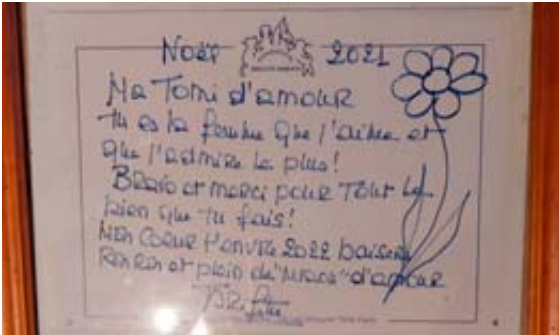 Noël 2021
Ma Tomi d'amour
Tu es la femme que j'aime et
que j'admire le plus!
Bravo et merci pour Tout le
bien que tu fais!
Mon Coeur t'envoie 2022 baisers
et plein de d'amour